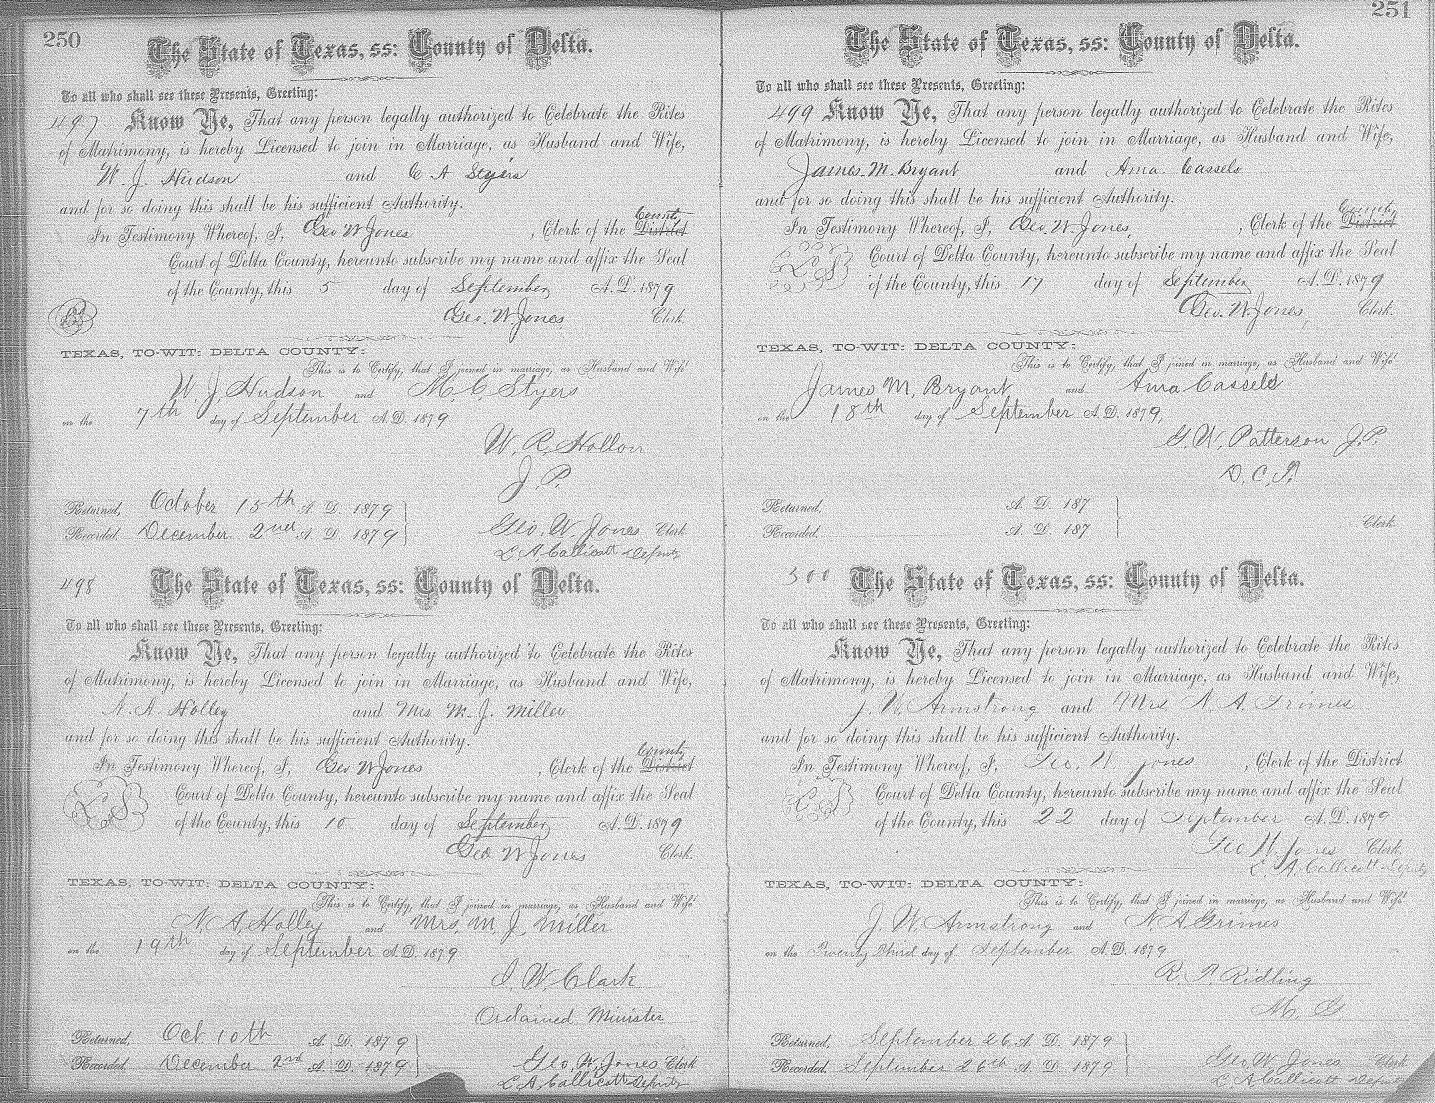 250
The State of Texas, ss: County of Delta.
To all who shall see these Presents, Greeting:
497 Know Ye, That any person legally authorized to Celebrate the Rites
of Matrimony, is hereby Licensed to join in Marriage, as Husband and Wife,
W. J. Hudson and C A Styers
and for so doing this shall be his sufficient Authority.
In Testimony Whereof, I, Geo W Jones, Clerk of the District County
Court of Delta County, hereunto subscribe my name and affix the Seal
of the County, this 5 day of September A. D. 1879
Geo. W. Jones Clerk.
TEXAS, TO-WIT: DELTA COUNTY:
This is to Certify, that I joined in marriage, as Husband and Wife
W J Hudson and M. C. Styers
on the 7th day of September A. D. 1879
W. R. Hollon
J. P.
Returned, October 15th A. D. 1879
Recorded, December 2nd A. D. 1879 Geo. W. Jones Clerk
L A Callicott Deputy
498 The State of Texas, ss: County of Delta.
To all who shall see these Presents, Greeting:
Know Ye, That any person legally authorized to Celebrate the Rites
of Matrimony, is hereby Licensed to join in Marriage, as Husband and Wife,
N. A. Holley and Mrs M. J. Miller
and for so doing this shall be his sufficient Authority.
In Testimony Whereof, I, Geo W Jones, Clerk of the District County
Court of Delta County, hereunto subscribe my name and affix the Seal
of the County, this 10 day of September A. D. 1879
Geo W Jones Clerk.
TEXAS, TO-WIT: DELTA COUNTY:
This is to Certify, that I joined in marriage, as Husband and Wife
N. A. Holley and Mrs. M J Miller
on the 19th day of September A. D. 1879
J. W. Clark
Ordained Minister
Returned, Oct. 10th A. D. 1879
Recorded, December 2nd A. D. 1879 Geo. W. Jones Clerk
L. A. Callicott Deputy
251
The State of Texas, ss: County of Delta.
To all who shall see these Presents, Greeting:
499 Know Ye, That any person legally authorized to Celebrate the Rites
of Matrimony, is hereby Licensed to join in Marriage, as Husband and Wife,
James. M. Bryant and Ama. Cassels
and for so doing this shall be his sufficient Authority.
In Testimony Whereof, I, Geo. W. Jones, Clerk of the District County
Court of Delta County, hereunto subscribe my name and affix the Seal
of the County, this 17 day of September A. D. 1879
Geo. W. Jones, Clerk.
TEXAS, TO-WIT: DELTA COUNTY:
This is to Certify, that I joined in marriage, as Husband and Wife
James M. Bryant and Ama Cassels
on the 18th day of September A. D. 1879,
G. W. Patterson J. P.
D. C. T.
Returned, A. D. 187
Recorded, A. D. 187 Clerk
500 The State of Texas, ss: County of Delta.
To all who shall see these Presents, Greeting:
Know Ye, That any person legally authorized to Celebrate the Rites
of Matrimony, is hereby Licensed to join in Marriage, as Husband and Wife,
J. W. Armstrong and Mrs. N. A. Grimes
and for so doing this shall be his sufficient Authority.
In Testimony Whereof, I, Geo. W Jones, Clerk of the District
Court of Delta County, hereunto subscribe my name and affix the Seal
of the County, this 22 day of September A. D. 1879
Geo W Jones Clerk.
L. A. Callicott Deputy
TEXAS, TO-WIT: DELTA COUNTY:
This is to Certify, that I joined in marriage, as Husband and Wife
J. W. Armstrong and N. A Grimes
on the Twenty third day of September A. D. 1879
R. P. Ridling
M. G
Returned, September 26 A. D. 1879
Recorded, September 26th A. D. 1879 Geo W Jones Clerk
L A Callicott Deputy